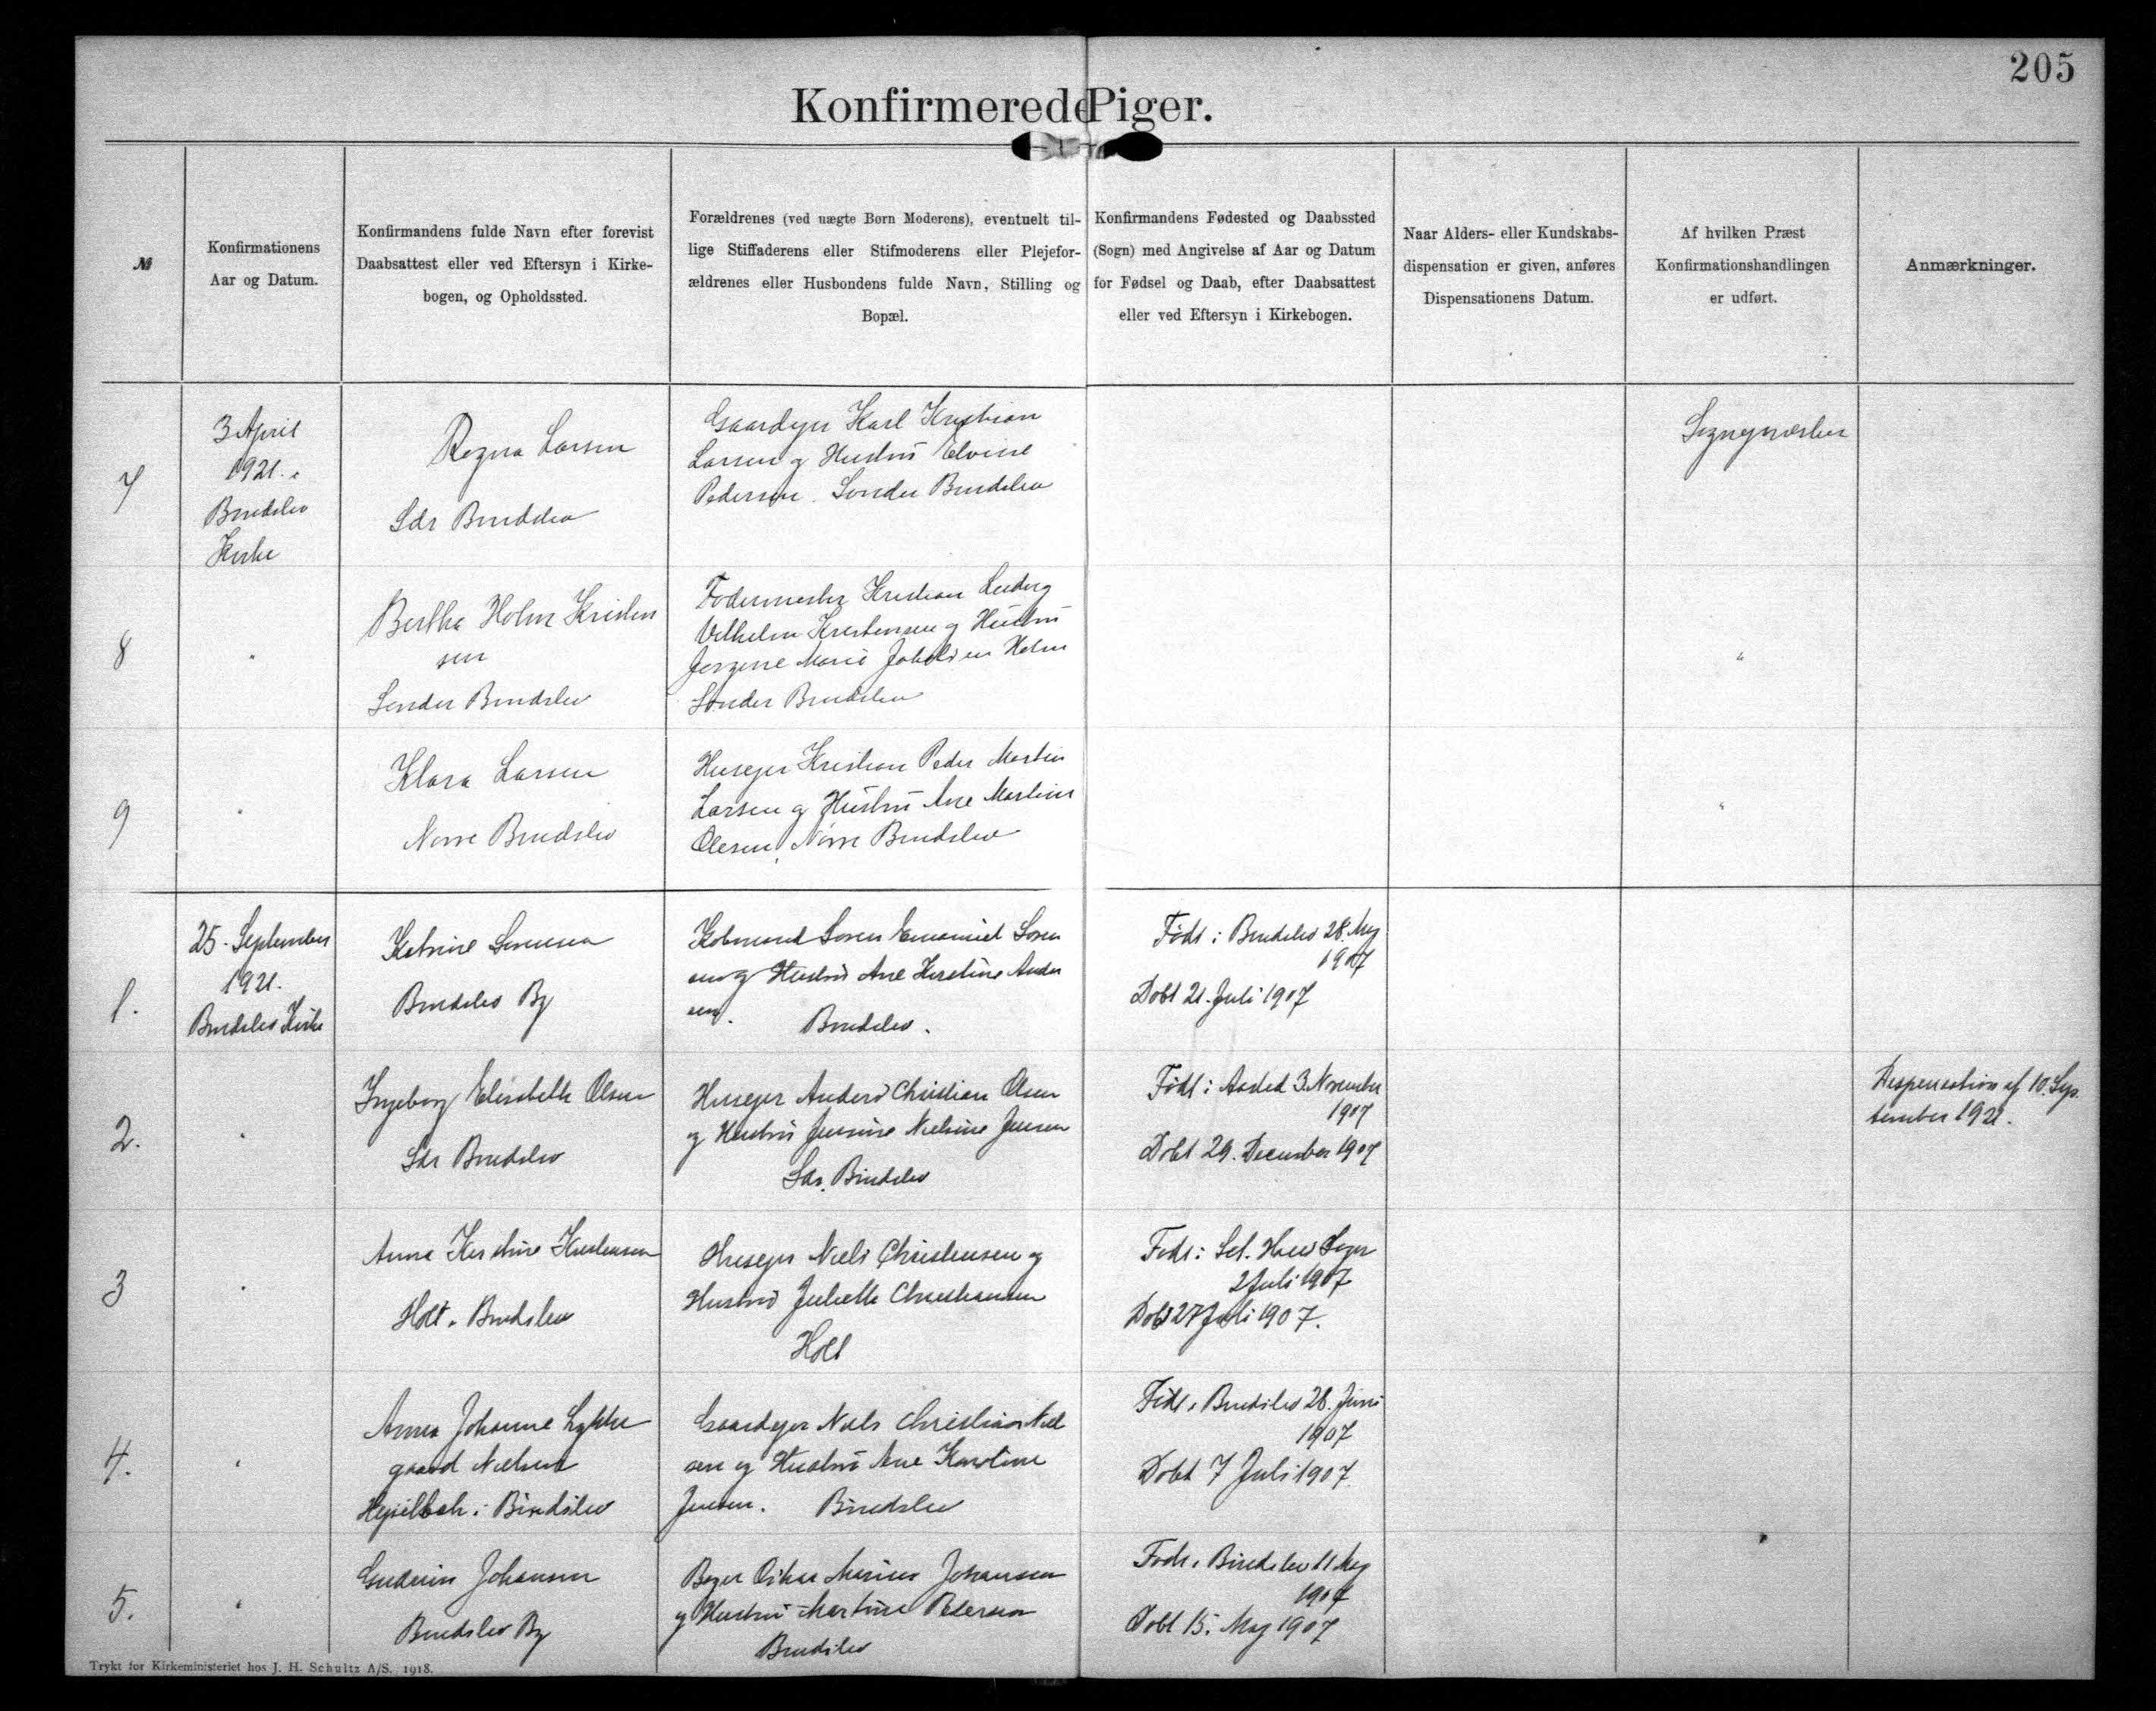 205
Konfirmerede Piger.
№
Konfirmationens
Aar og Datum.
Konfirmandens fulde Navn efter forevist
Daabsattest eller ved Eftersyn i Kirke-
bogen, og Opholdssted.
Forældrenes (ved uægte Børn Moderens), eventuelt til-
lige Stiffaderens eller Stifmoderens eller Plejefor-
ældrenes eller Husbondens fulde Navn, Stilling og
Bopæl.
Konfirmandens Fødested og Daabssted
(Sogn) med Angivelse af Aar og Datum
for Fødsel og Daab, efter Daabsattest
eller ved Eftersyn i Kirkebogen.
Naar Alders- eller Kundskabs-
dispensation er given, anføres
Dispensationens Datum.
Af hvilken Præst
Konfirmationshandlingen
er udført.
Anmærkninger.
7
3 April
1921.
Bindslev
Kirke
Regna Larsen
Sdr Bindslev
Gaardejer Karl Kristian
Larsen og Hustru Elvine
Pedersen. Sønder Bindslev
Sognepræsten
8
"
Bertha Holm Kristen
sen
Sønder Bindslev
Fodermester Kristian Ludvig
Vilhelm Kristensen og Hustru
Jørgine Marie Holm
Sønder Bindslev
"
9
"
Klara Larsen
Nørre Bindslev
Husejer Kristian Peder Martin
Larsen og Hustru Ane Martine
Olesen, Nørre Bindslev
"
1.
25. September
1921.
Bindslev Kirke
Katrine Sørensen
Bindslev By
Købmand Søren Emanuel Søren
sen og Hustru Ane Kirstine Ander
sen. Bindslev.
Født i Bindslev 28. Maj
1907
Døbt 21. Juli 1907
2.
"
Ingeborg Elisabeth Olsen
Sdr Bindslev
Husejer Anders Christian Olsen
og Hustru Jensine Nielsine Jensen
Sdr. Bindslev
Født i Aasted 3. November
1907
Døbt 29. December 1907
Dispensation af 10. Sep
tember 1921.
3
"
Anna Kirstine Kristensen
Holt. Bindslev
Husejer Niels Christensen og
Hustru Juliette
Holt
Født i Sct. Hans Sogn
2 Juli 1907
Døbt 27 Juli 1907.
4.
"
Anna Johanne Lykke
gaard Nielsen
i Bindslev
Gaardejer Niels Christian Niel
sen og Hustru Ane Karoline
Jensen. Bindslev
Født i Bindslev 28. Juni
1907
Døbt 7 Juli 1907
5.
"
Gudrun Johansen
Bindslev By
Bager Oskar Marius Johansen
og Hustru Martine Petersen
Bindslev
Født i Bindslev 11 Maj
1907
Døbt 15. Maj 1907
Trykt for Kirkeministeriet hos J. H. Schultz A/S. 1918.